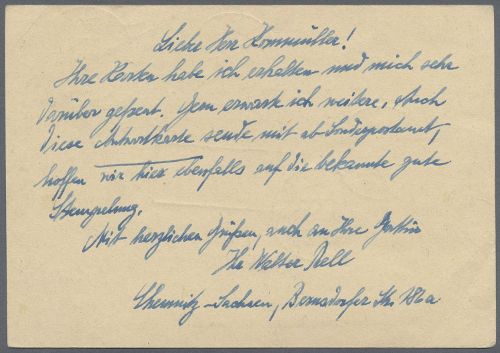 Lieber Herr Kornmüller!
Ihre Karten habe ich erhalten und mich sehr
darüber gefreut. Gern erwarte ich weitere. Auch
diese Antwortkarte sende mit ab Sonderpostamt,
hoffen wir hier ebenfalls auf die bekannte gute
Stempelung.
Mit herzlichen Grüßen, auch an Ihre Gattin
Ihr Walter Rell
Chemnitz-Sachsen, Bernsdorfer Str. 186a